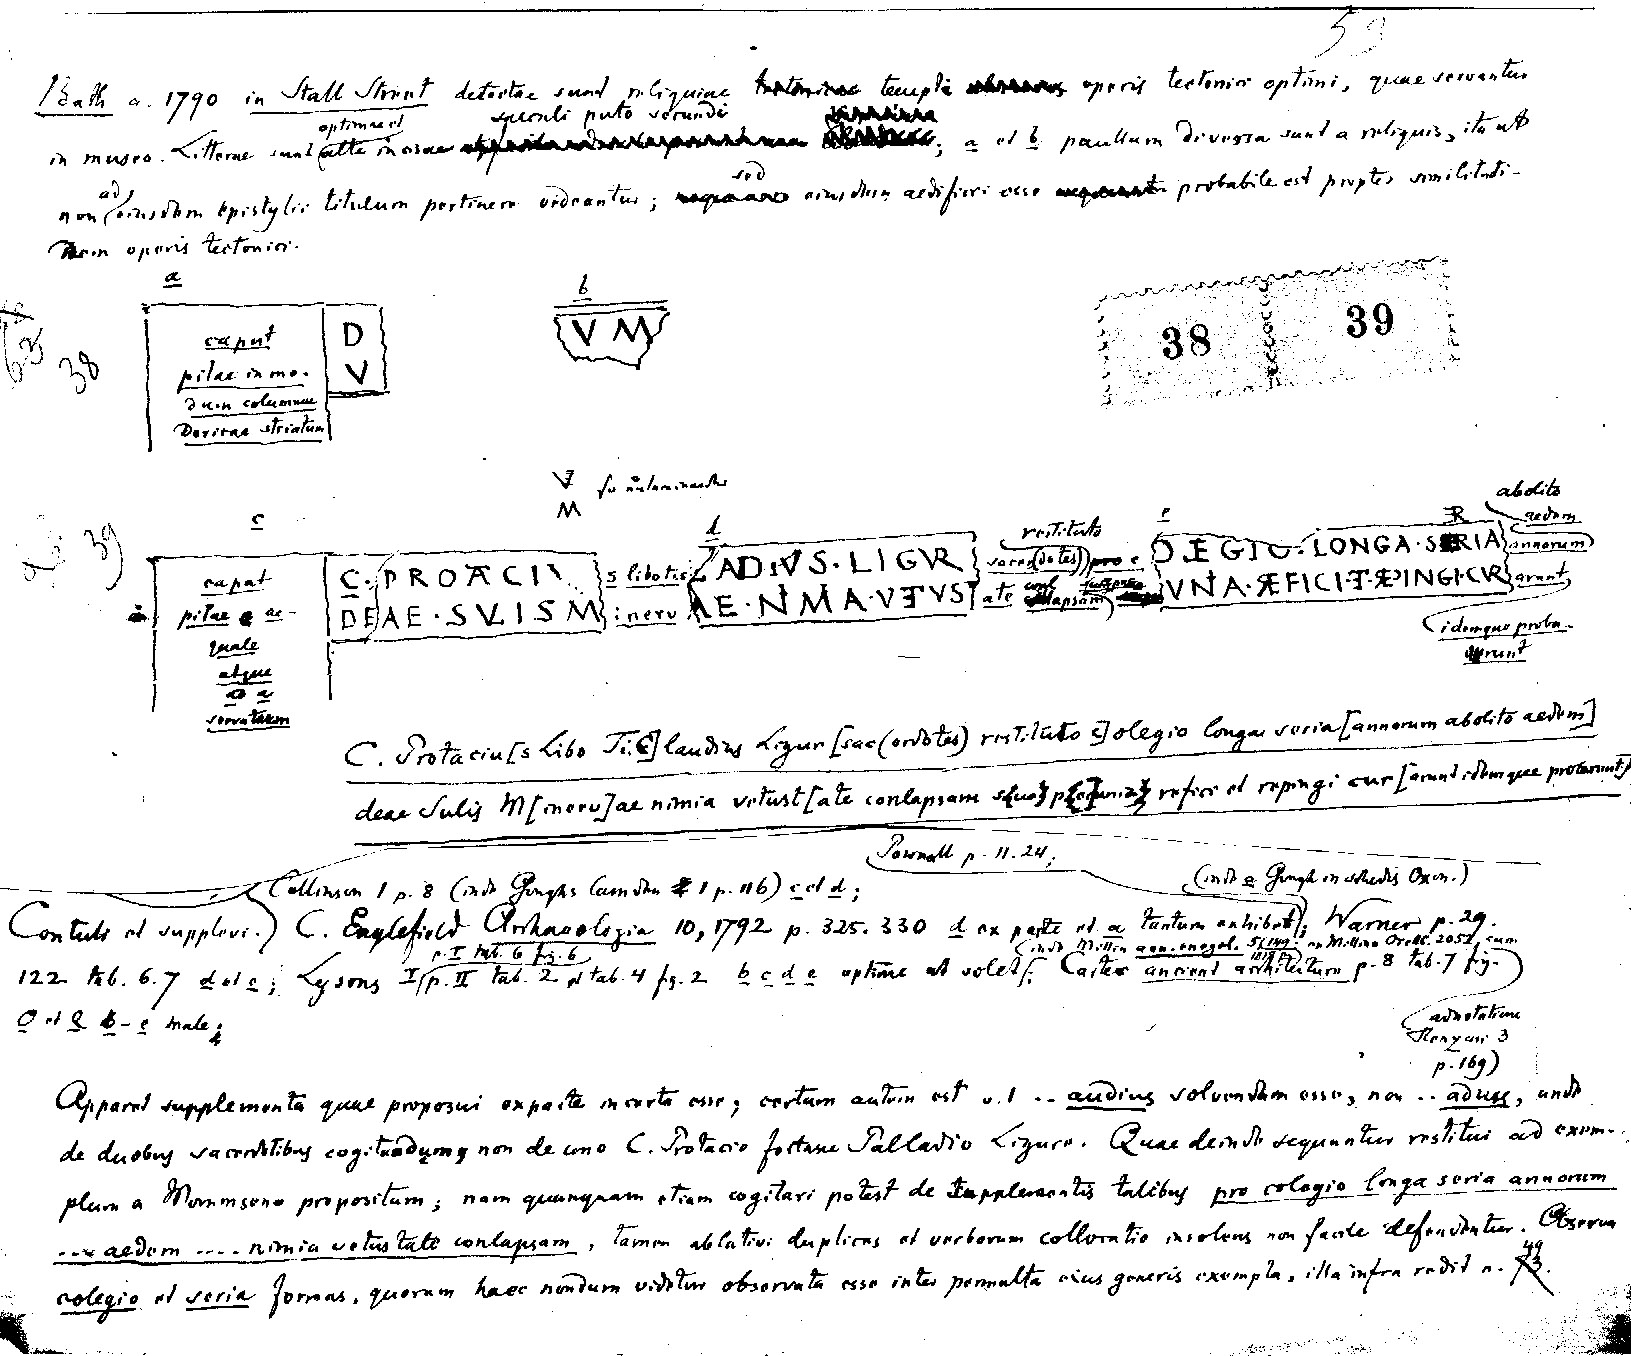 53
Bath a. 1790 in Stall Street detectae sunt reliquiae templi operis tectonici optimi, quae servantur
optimae et saeculi puto secundi
in museo. Litterae sunt alte incisae ; a et b paullum diversa sunt a reliquis, ita ut
ad sed
non eiusdem epistylii titulum pertinere videantur; eiusdem aedificii esse probabile est propter similitudi-
nem operis tectonici.
a b
38
caput
pilae in mo-
dum columnae
Doricae striatum
D
V
V M
38 39
39
c d e
caput
pilae ae-
quale
atque
a
servatum
C. PROTACIV
DEAE · SVLIS M
s libo ti c
inerv
LADIVS · LIGVR
AE · NIMIA · VETVST
restituto
sacerdotes) pro c
ate conlapsam
OLEGIO · LONGA · SERIA
VNIA · REFICI · ET · REPINGI · CVR
abolito
aedem
annorum
arunt
idemque proba-
verunt
C. Protaciu[s Libo Ti. C]laudius Ligur [sac(erdotes) restituto c]olegio longa seria [annorum abolito aedem]
deae Sulis M[inerv]ae nimia vetust[ate conlapsam s(ua) p(ecunia)] refici et repingi cur[arunt idemque probarunt]
Pownall p. 11. 24;
Collinson 1 p. 8 (inde Goughs Camden 1 p. 116) c et d; (inde e Gough in schedis Oxon.)
Contuli et supplevi. C. Englefield Archaeologia 10, 1792 p. 325. 330 d ex parte et a tantum exhibet; Warner p. 29.
p. I tab. 6 fig. 6 (inde Millin ann. encycl. ex Millino Orelli 2052, cum
122 tab. 6. 7 d et e; Lysons I p. II tab. 2 et tab. 4 fig. 2 b c d e optime ut solet; Carter ancient architecture p. 8 tab. 7 fig.
O et Q b-e male;
adnotatione
Henzeni 3
p. 169)
Apparet supplementa quae proposui ex parte incerta esse; certum autem est v. 1 .. audius solvendum esse, non .. adius, unde
de duobus sacerdotibus cogitandum, non de uno C. Protacio fortasse Palladio Ligure. Quae deinde sequuntur restitui ad exem-
plum a Mommseno propositum; nam quamquam etiam cogitari potest de supplementis talibus pro colegio longa seria annorum
.... aedem .... nimia vetustate conlapsam, tamen ablativi duplices et verborum collocatio insolens non facile defenduntur. Observa
colegio et seria formas, quarum haec nondum videtur observata esse inter permulta eius generis exempla, illa infra redit n. 49.